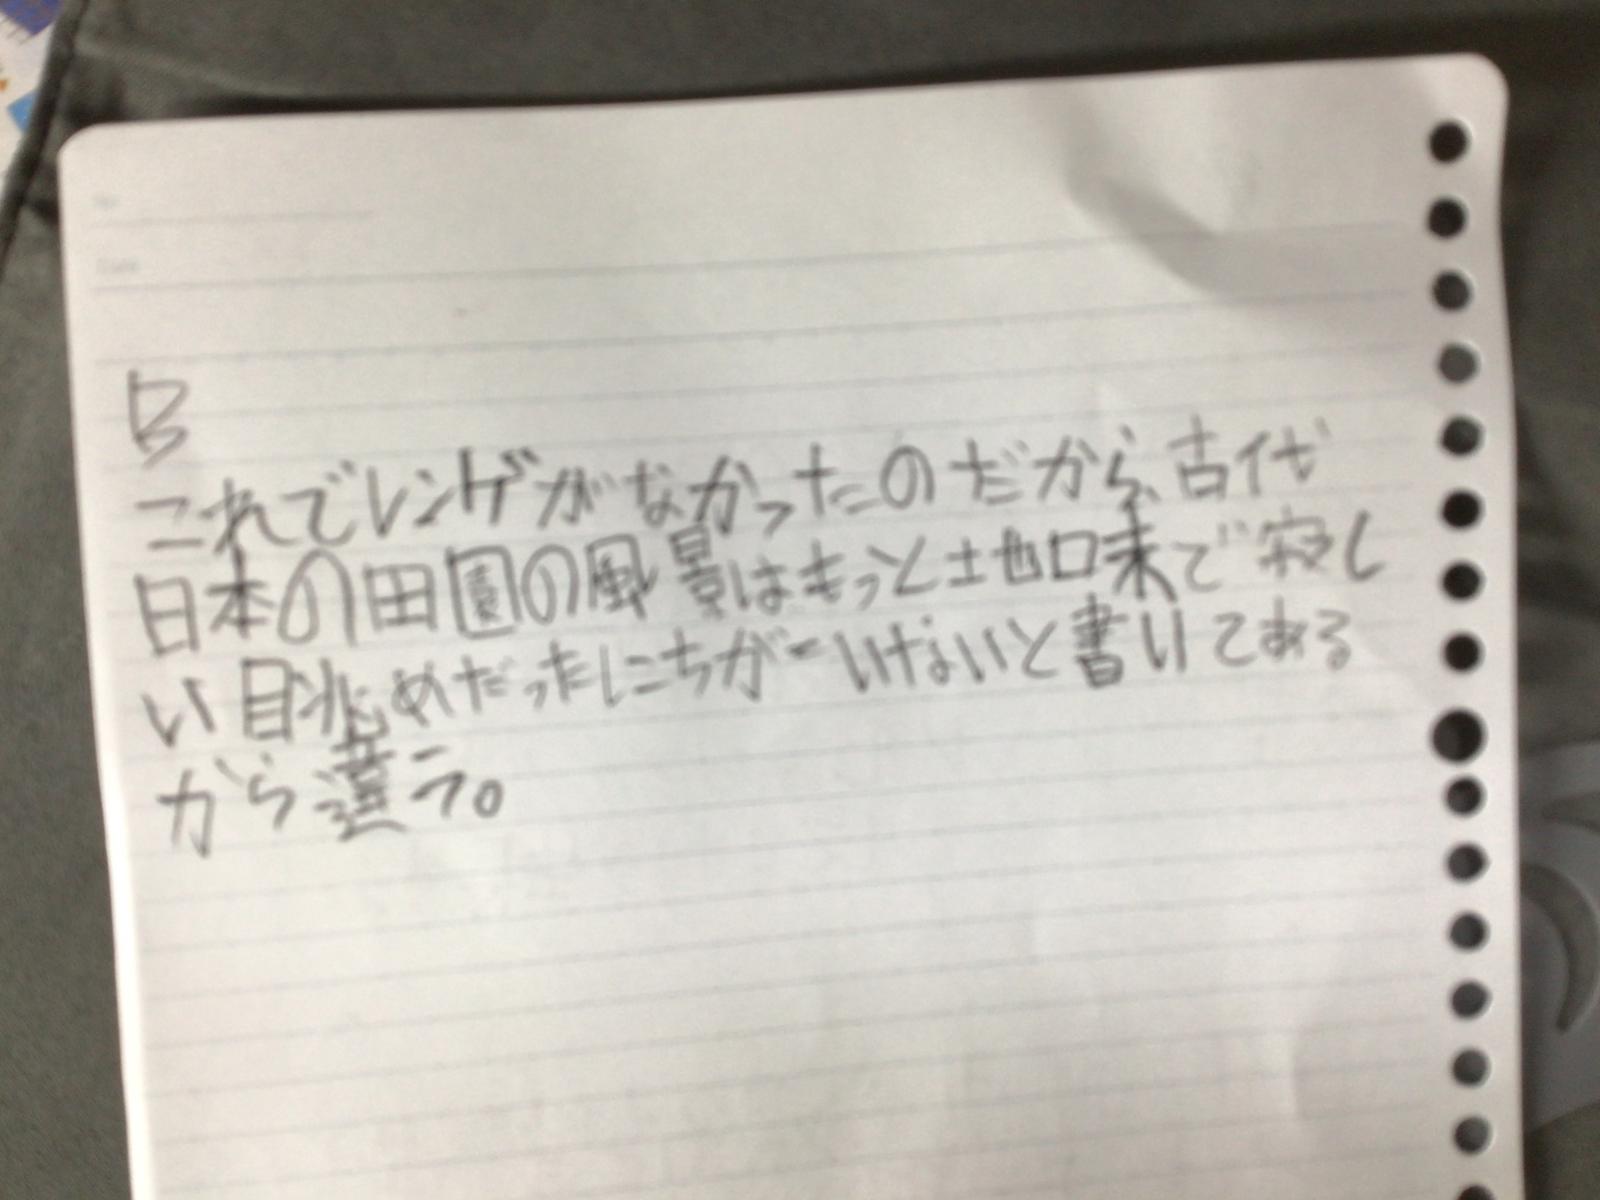 B
これでレンゲがなかったのだから、古代
日本の田園の風景はもっと土地口未で寂し
い眺めだったにちがーいけないと書いてある
から違う。